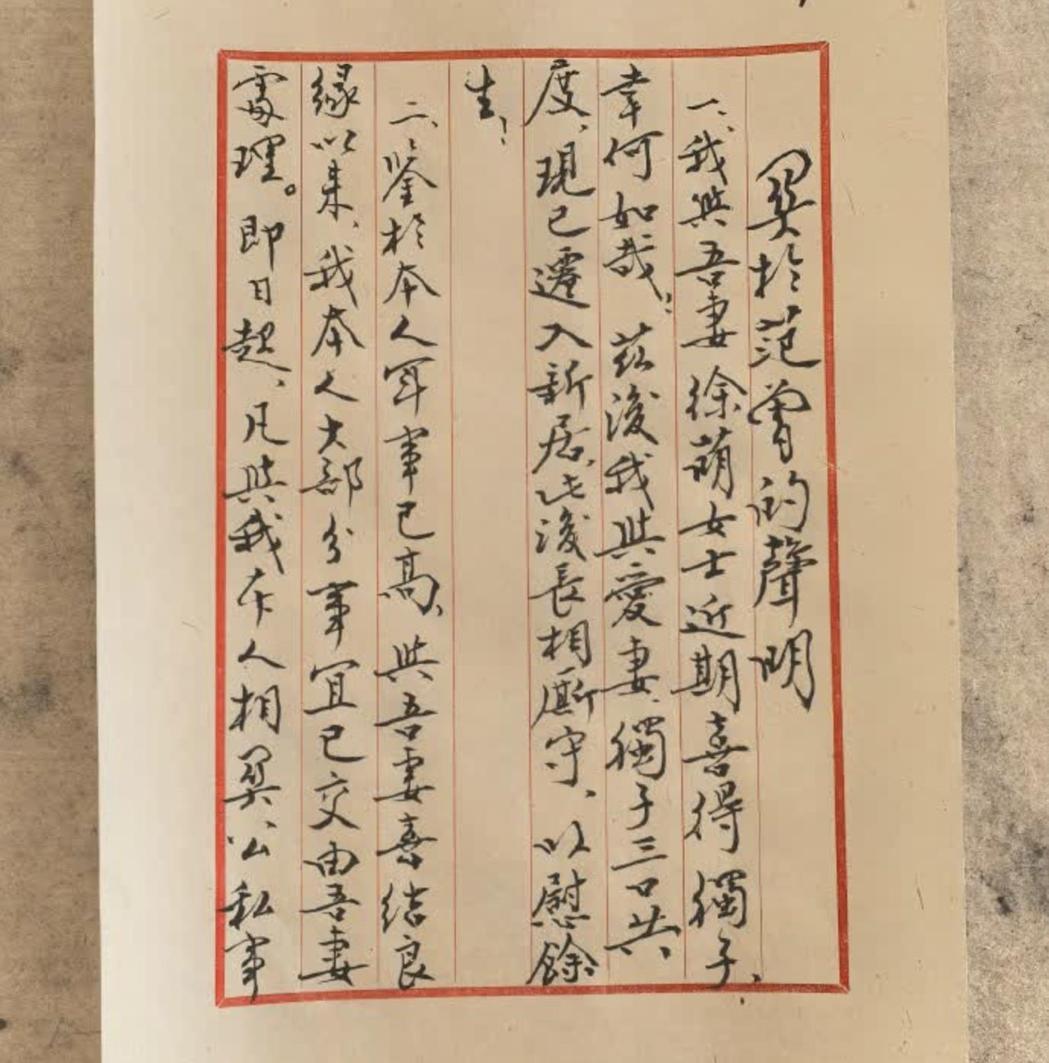 関於范曾的聲明
一、我與吾妻徐萌女士近期喜得獨子、
幸何如哉！茲後我與愛妻、獨子三口共
度、現已遷入新居、此後長相廝守、以慰餘
生！
二、鉴於本人年事已高、與吾妻喜结良
緣以来、我本人大部分事宜已交由吾妻
處理。即日起、凡與我本人相関公私事